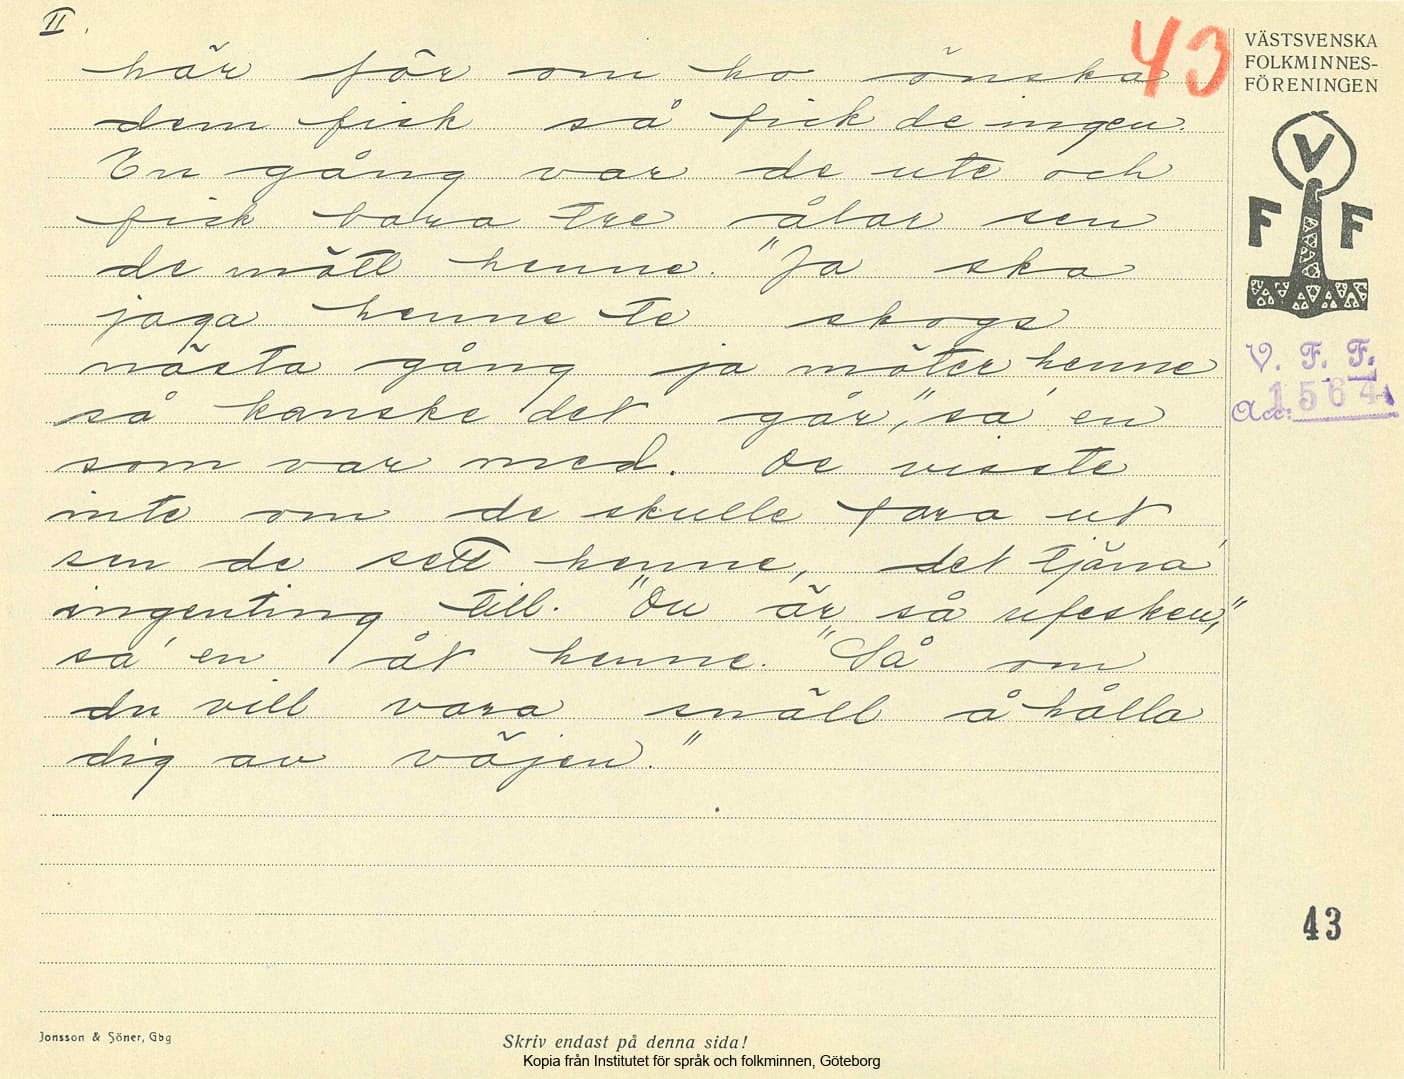 II.
43
här för om ho önska
dem fisk så fick de ingen.
En gång var de ute och
fick bara tre ålar sen
de mött henne. "Ja ska
jaga henne te skogs
nästa gång ja möter henne
så kanske det går", sa' en
som var med. De visste
inte om de skulle fara ut
sen de sett henne, det tjäna'
ingenting till. "Du är så ufesken",
sa' en åt henne. "Så om
du vill vara snäll å hålla
dig av väjen."
VÄSTSVENSKA
FOLKMINNES-
FÖRENINGEN
V
F F
V. F. F.
Acc: 1564
43
Jonsson & Söner, Gbg
Skriv endast på denna sida!
Kopia från Institutet för språk och folkminnen, Göteborg